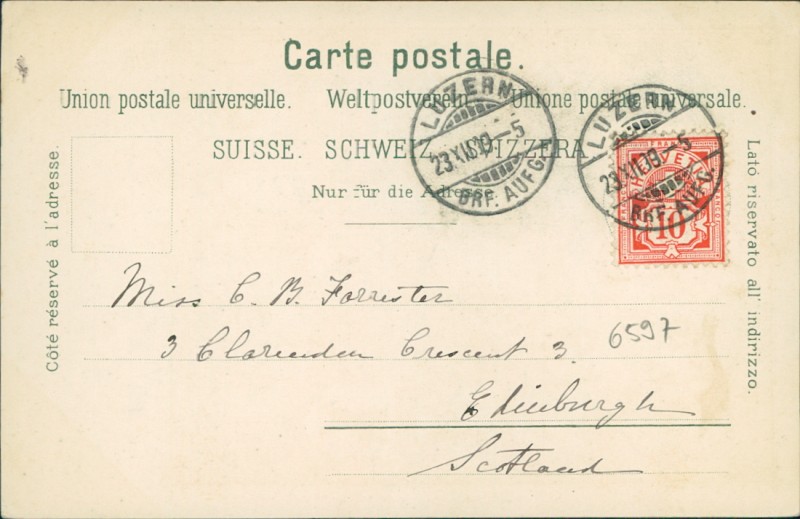 Carte postale.
Union postale universelle. Weltpostverein. Unione postale universale.
SUISSE. SCHWEIZ. SVIZZERA.
Nur für die Adresse.
Côté réservé à l'adresse.
Lató riservato all' indirizzo.
LUZERN
23.XII.
BRF. AUFG.
LUZERN
23.XII.
BRF. AUFG.
FRANCO
HELVETIA
10
Miss C. B. Forrester
3 Clarendon Crescent 3.
6597
Edinburgh
Scotland